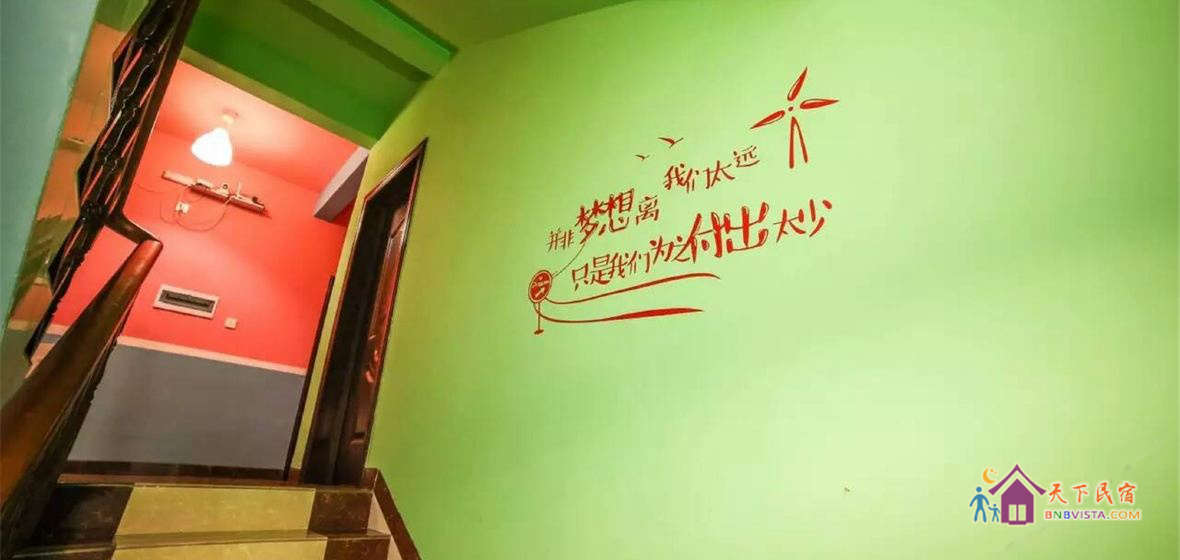 并非梦想离我们太远
只是我们为之付出太少
天下民宿
BNBVISTA.COM